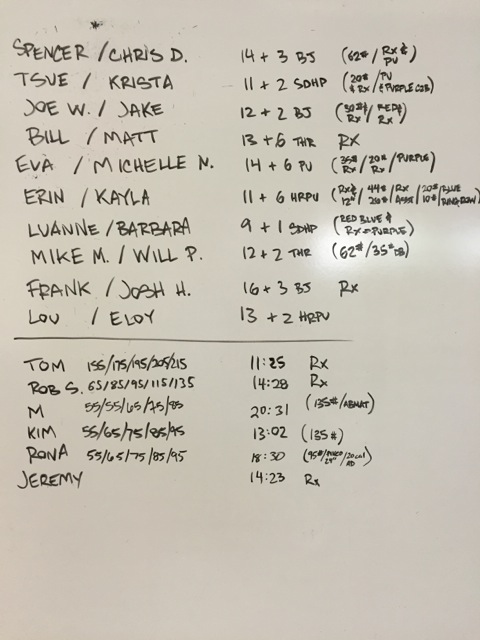 SPENCER / CHRIS D. 14 + 3 BJ (62# / Rx & PU)
TSUE / KRISTA 11 + 2 SDHP (20# & Rx / PU & PURPLE
JOE W. / JAKE 12 + 2 BJ (50# / RED & Rx / Rx)
BILL / MATT 13 + 6 THR Rx
EVA / MICHELLE N. 14 + 6 PU (35# / 20# / PURPLE) Rx / Rx
ERIN / KAYLA 11 + 6 HRPU (Rx & 12" / 44# / Rx / 20# / BLUE 20# / ASSIST / 10# / RING ROW
LUANNE / BARBARA 9 + 1 SDHP (RED BLUE & Rx = PURPLE)
MIKE M. / WILL P. 12 + 2 THR (62# / 35# DB)
FRANK / JOSH H. 16 + 3 BJ Rx
LOU / ELOY 13 + 2 HRPU
TOM 155/175/195/205/215 11:25 Rx
ROB S. 65/85/95/115/135 14:28 Rx
M 55/55/65/75/85 20:31 (135# / ABMAT)
KIM 55/65/75/85/95 13:02 (135#)
RONA 55/65/75/85/95 18:30 (95# / 24" / 20 CAL AD)
JEREMY 14:23 Rx